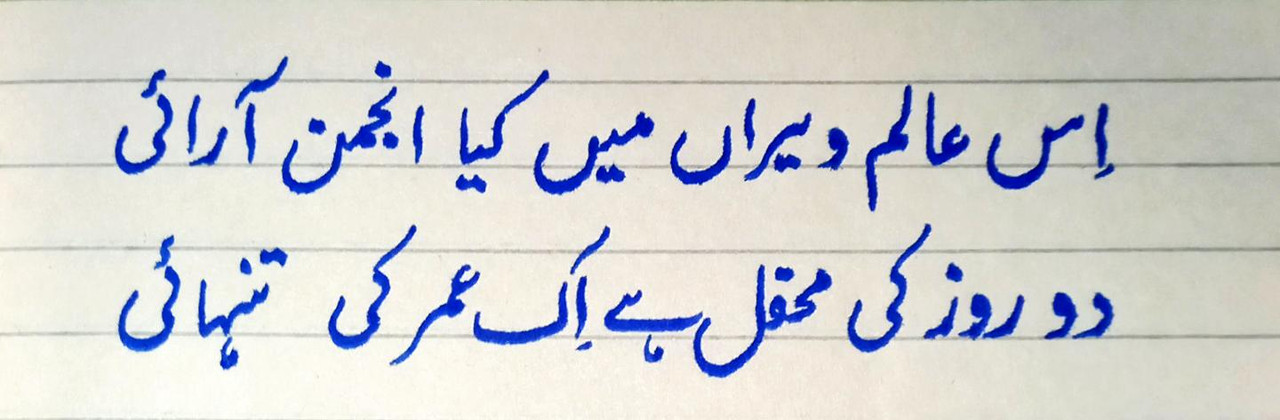 اِس عالم ویراں میں کیا انجمن آرائی
دو روز کی محفل ہے اِک عمر کی تنہائی